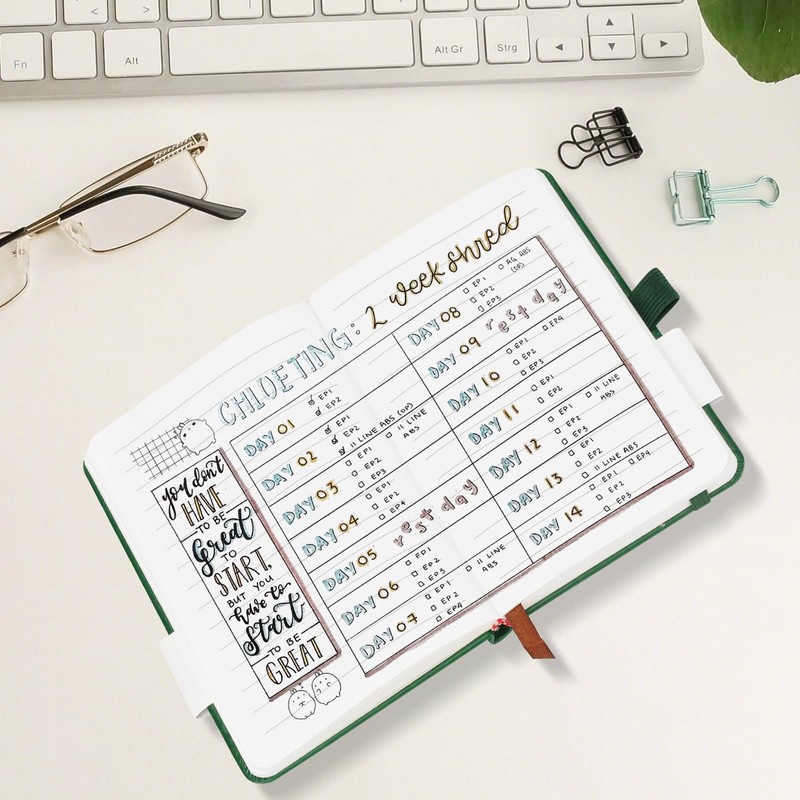 Fn
Alt
Alt Gr
Strg
CHLOETING: 2 week shred
you don't
HAVE
TO BE
Great
TO
START,
BUT YOU
have to
Start
TO BE
GREAT
DAY 01
EP1
EP2
DAY 02
EP1
EP2
11 LINE ABS (OP)
DAY 03
EP1
EP2
EP3
11 LINE
ABS
DAY 04
EP1
EP2
EP4
DAY 05 rest day
DAY 06
EP1
EP2
EP3
DAY 07
EP1
EP2
EP4
11 LINE
ABS
DAY 08
EP1
EP2
EP3
AG ABS
(OP)
DAY 09 rest day
DAY 10
EP1
EP2
EP3
EP4
DAY 11
EP1
EP2
DAY 12
EP1
EP2
EP3
11 LINE
ABS
DAY 13
EP1
EP2
11 LINE ABS
DAY 14
EP1
EP2
EP3
EP4